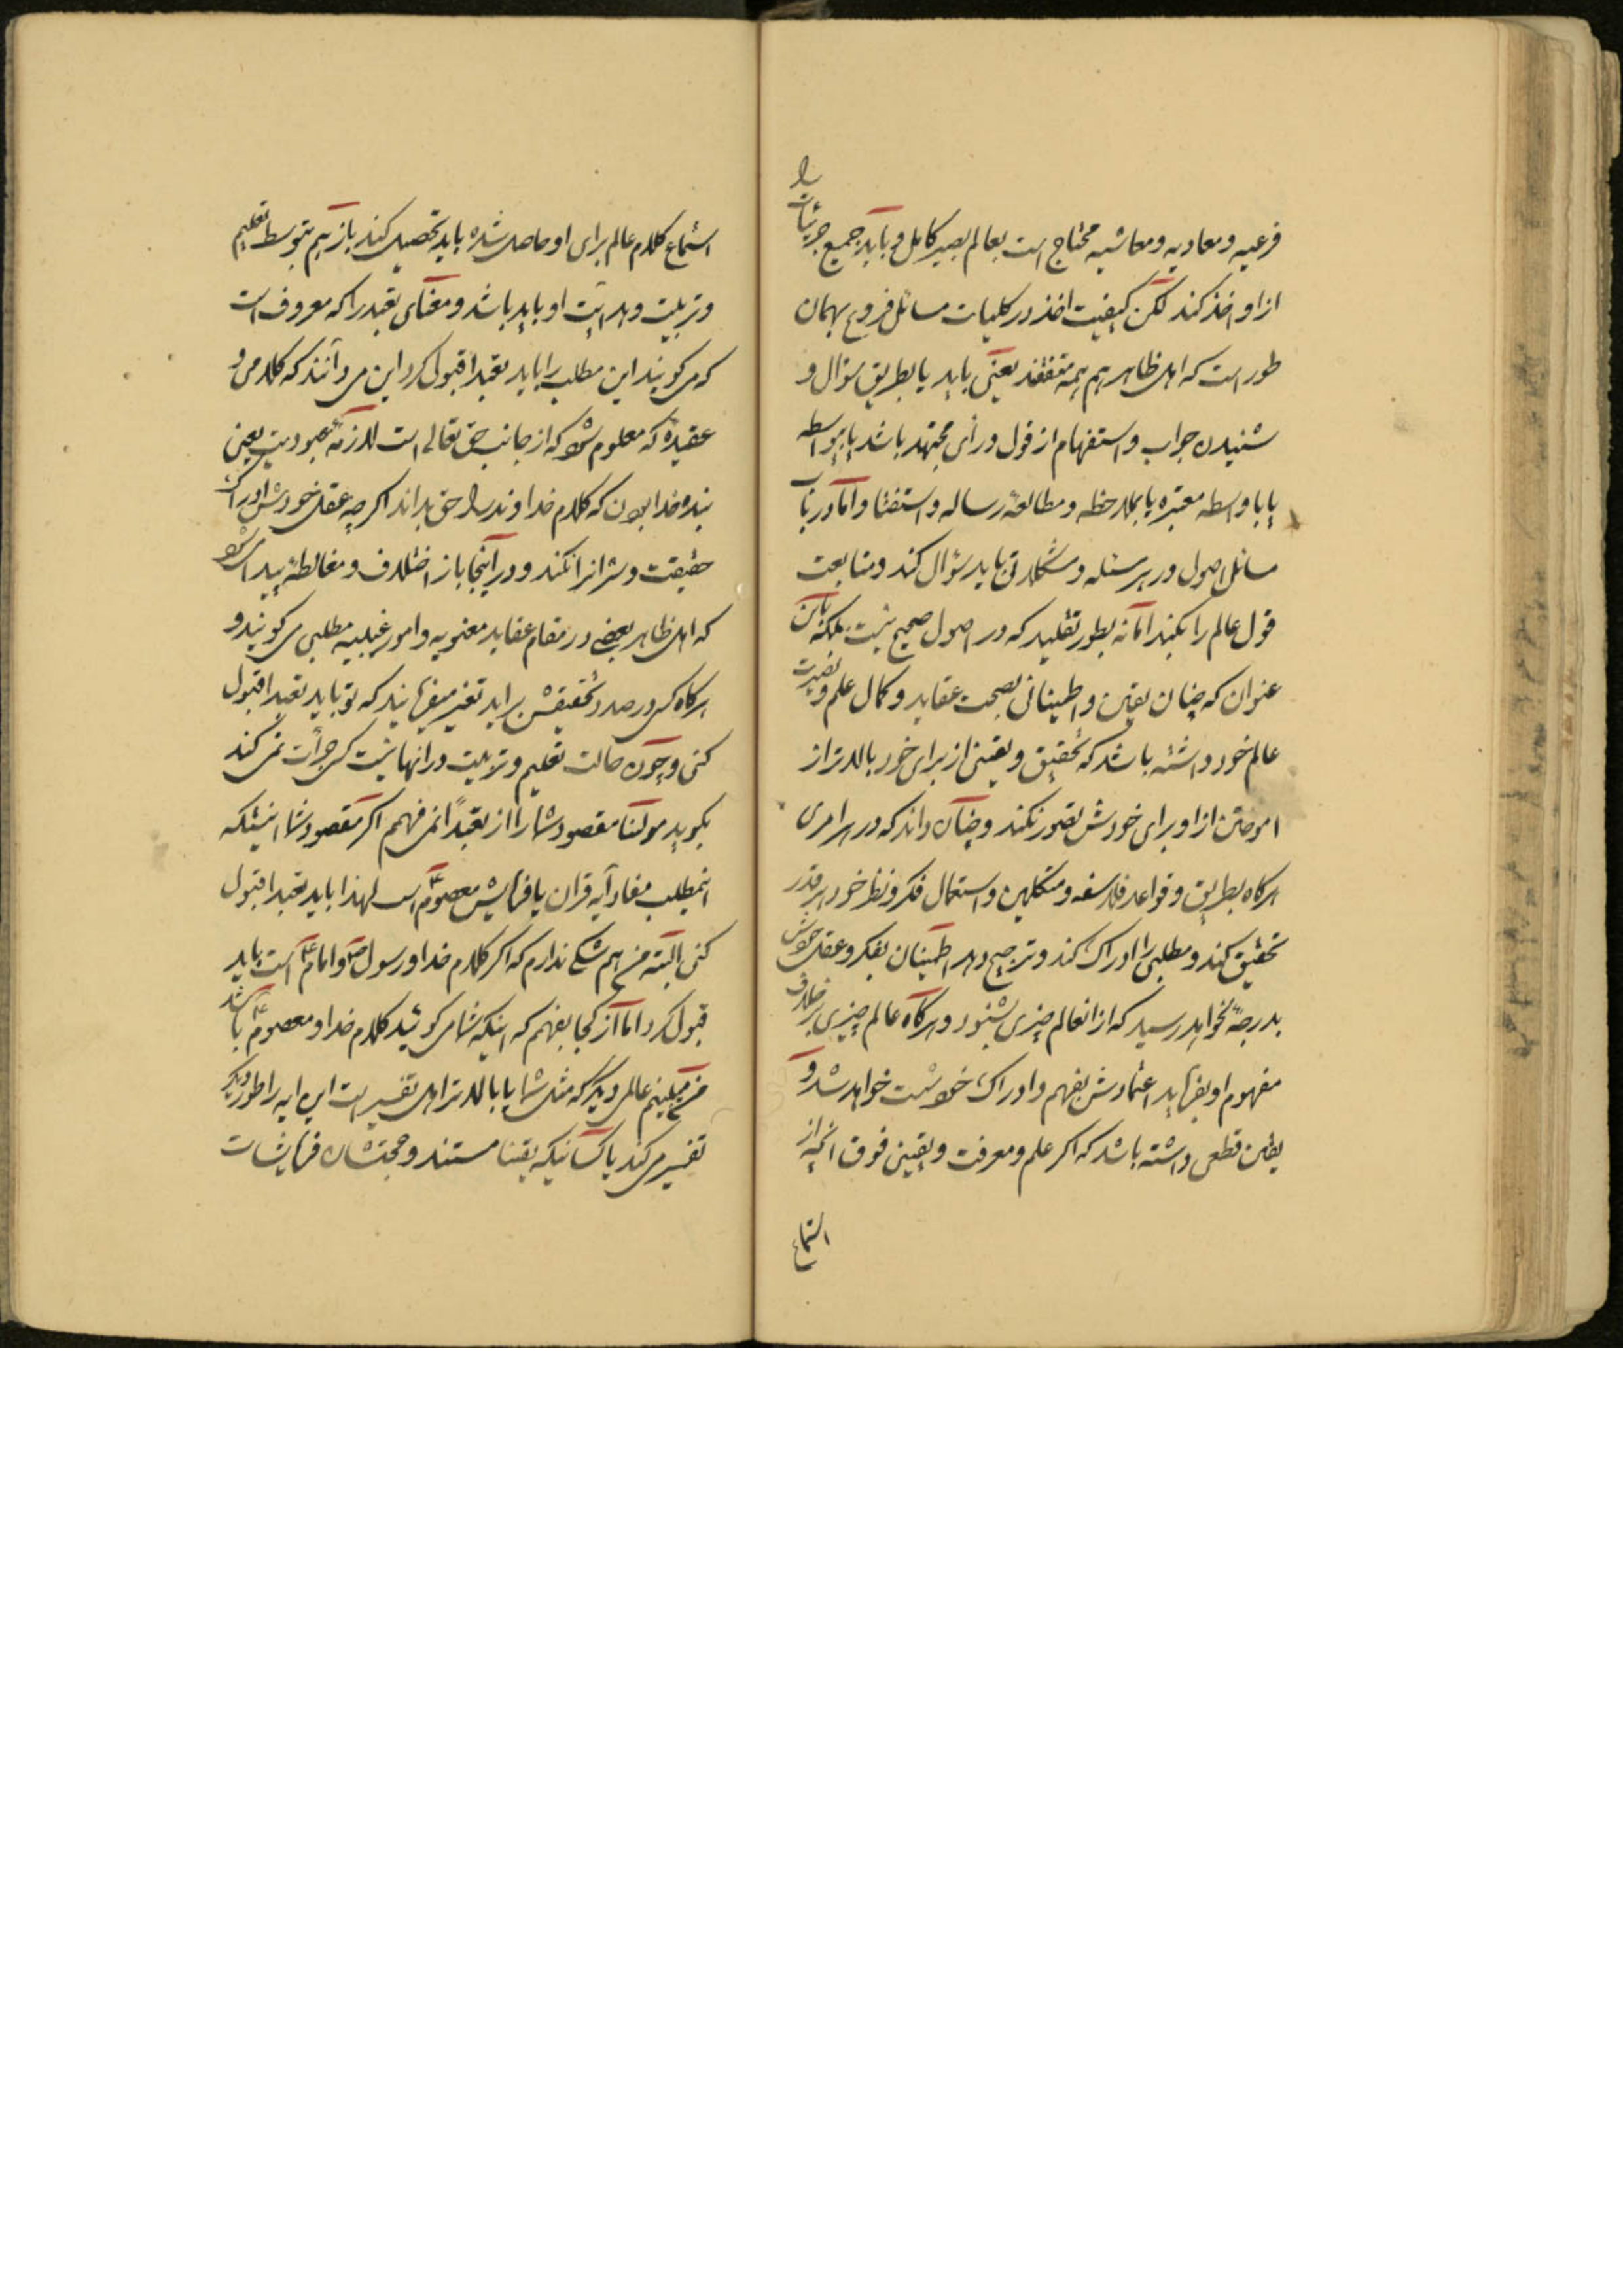 فرعیه و معادیه و معاشیه محتاج است بعالم بصیر کامل و باید جمیع جزئیات را
از او اخذ کند لکن کیفیت اخذ در کلیات مسائل فروع بهمان
طور است که اهل ظاهر هم همه متفقند یعنی باید یا بطریق سؤال و
شنیدن جواب و استفهام از قول و رأی مجتهد باشد یا بیواسطه
یا با واسطه معتبره یا بملاحظه و مطالعهٔ رساله و استفتا و اما در باب
مسائل اصول در هر مسئله و مشکلاتی باید سؤال کند و متابعت
قول عالم را بکند اما نه بطور تقلید که در اصول صحیح نیست بلکه باین
عنوان که چنان یقین و اطمینانی بصحت عقاید و کمال علم و بصیرت
عالم خود داشته باشد که تحقیق و یقینی از برای خود بالاتر از
اموختن از او برای خودش تصور نکند و چنان داند که در هر امری
هرگاه بطریق و قواعد فلاسفه و متکلمین و استعمال فکر و نظر خود هر قدر
تحقیق کند و مطلبی را ادراک کند و ترجیح دهد اطمینان بفکر و عقل خودش
بدرجهٔ نخواهد رسید که از انعالم چیزی بشنود و هرگاه عالم چیزی بر خلاف
مفهوم او بفرماید اعتمادش بفهم و ادراک خود سست خواهد شد و
یقین قطعی داشته باشد که اگر علم و معرفت و یقینی فوق انچه از
استماع
استماع کلام عالم برای او حاصل شده باید تحصیل کند باز هم بتوسط تعلیم
و تربیت و هدایت او باید باشد و معنای تعبد را که معروف است
که می گویند این مطلب را باید تعبدا قبول کرد این می دانند که کلامی و
عقیدهٔ که معلوم شود که از جانب حق تعالی است لازمهٔ عبودیت یعنی
بنده خدا بودن که کلام خداوند را حق بداند اگر چه عقل خودش ادراک
حقیقت و سر انرا نکند و در اینجا باز اختلاف و مغالطهٔ پیدا می شود
که اهل ظاهر بعضی در مقام عقاید معنویه و امور غیبیه مطلبی می گویند و
هرگاه کسی در صدد تحقیقش براید تغیر میفرمایند که تو باید تعبدا قبول
کنی و چون حالت تعلیم و تربیت در انها نیست کسی جرأت نمی کند
بگوید مولینا مقصود شما را از تعبداً نمی فهمم اگر مقصود شما اینستکه
اینمطلب مفاد آیه قران یا فرمایش معصومؑ است لهذا باید تعبدا قبول
کنی البته من هم شکی ندارم که اگر کلام خدا و رسولؐ و امامؑ است باید
قبول کرد اما از کجا بفهمم که اینکه شما می گوئید کلام خدا و معصومؑ باشد
من می بینم عالمی دیگر که مثل شما یا بالاتر اهل تفسیر است این ایه را طور دیگر
تفسیر می کند یا کسانیکه یقینا مستند و حجتشان فرمایشات